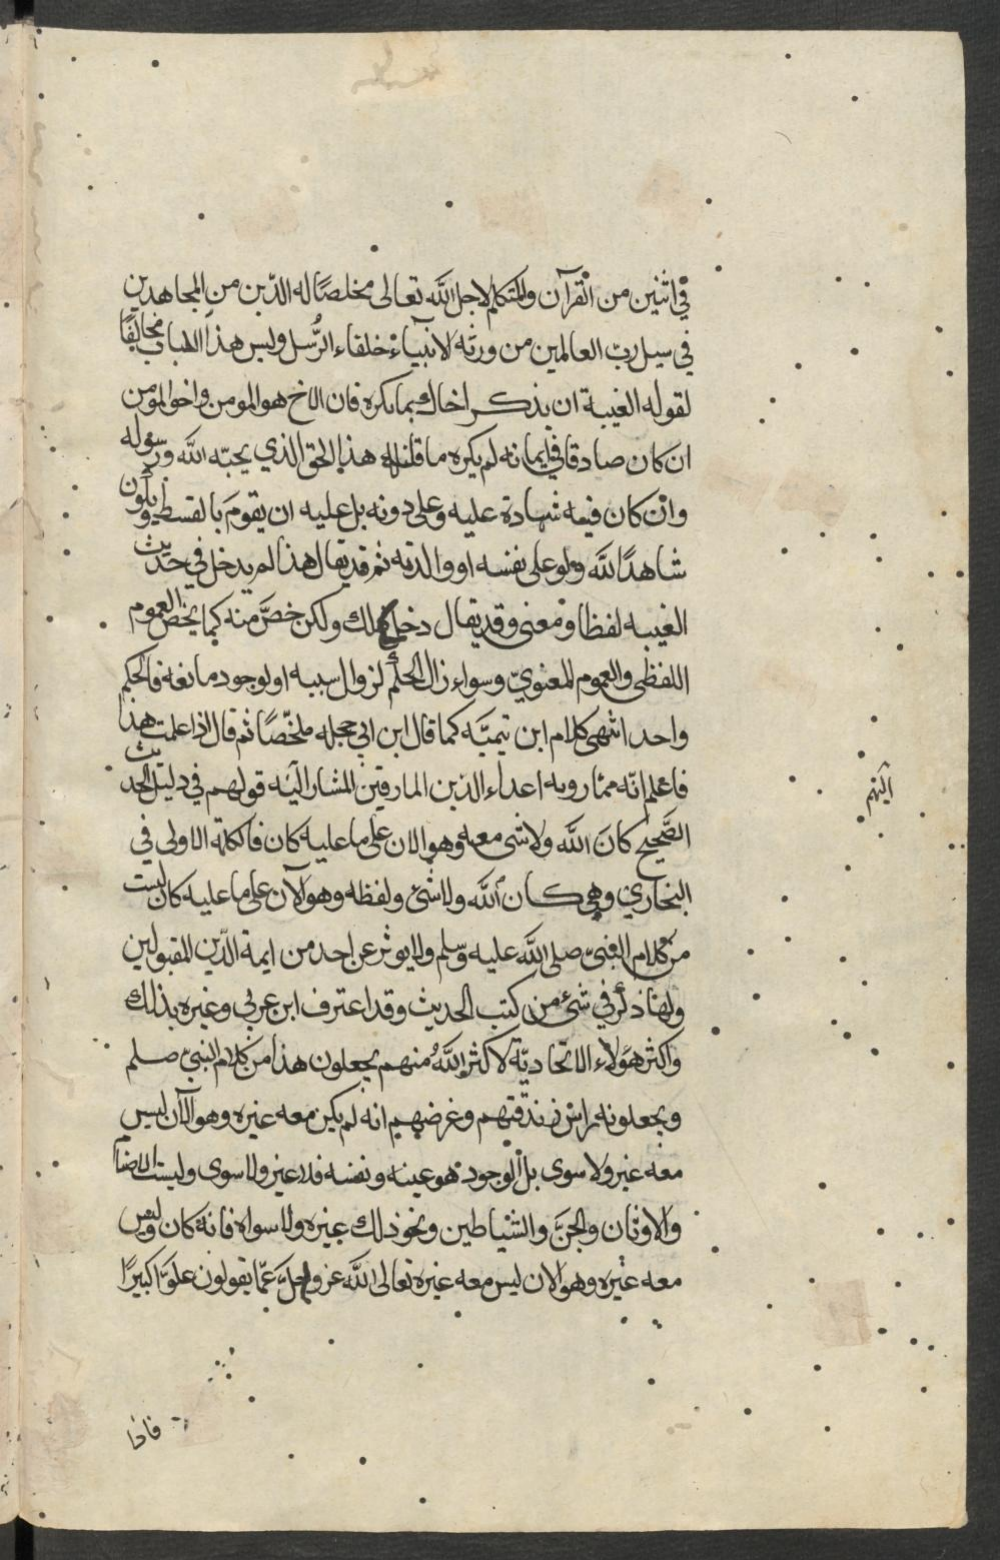 في اثنين من القرآن والمتكلم لاجل الله تعالى مخلصًا له الدّين من المجاهدين
في سبيل ربّ العالمين من ورثه لانبياء خلفاء الرُّسل وليس هذا الباب مخالفًا
لقوله الغيبة ان يذكر اخاك بما يكره فان الاخ هو المومن واخو المومن
ان كان صادقا في ايمانه لم يكره ما قلته هذا الحق الذي يحبّه الله ورسوله
وان كان فيه شهادة عليه وعلى دونه بل عليه ان يقوم بالقسط ويكون
شاهدًا لله ولو على نفسه او والدته ثم قد يقال هذا لم يدخل في حديث
الغيبه لفظا ومعنى وقد يقال دخل ولكن خصّ منه كما يخص العموم
اللفظى والعموم المعنويّ وسواء زال الحكم لزوال سببه او لوجود مانعه فالحكم
واحد انتهى كلام ابن تيميّه كما قال ابن ابي حجله ملخّصًا ثم قال اذا علمت هذا
فاعلم انّه ممّا رويه اعداء الذين المارقين المشار اليه قولهم في الحديث
اليهم
الصَّحيح كانَ الله ولا شى معه وهو الان على ما عليه كان فالكلمة الاولى في
البخاري وهي كان الله ولا شئ ولفظه وهو الآن على ما عليه كان ليست
من كلام النبىّ صلى الله عليه وسلم ولا يوثر عن احد من ايمة الدّين المقبولين
ولهذا ذكر في شئ من كتب الحديث وقد اعترف ابن عربي وغيره بذلك
واكثر هؤلاء الاتحاديّة لا كثر اللهُ منهم يجعلون هذا من كلام النبيّ صلم
ويجعلونه راس زندقتهم وغرضهم انه لم يكن معه غيره وهو الآن ليس
معه غير ولا سوى بل الوجود هو عينه ونفسه فلا غير ولا سوى وليست الاصنام
والاوثان والجنّ والشياطين ونحو ذلك غيره ولا سواه فانه كان وليس
معه غيره وهو الان ليس معه غيره تعالى الله عز وجلّ عمّا يقولون علوّا كبيرًا
فاذا